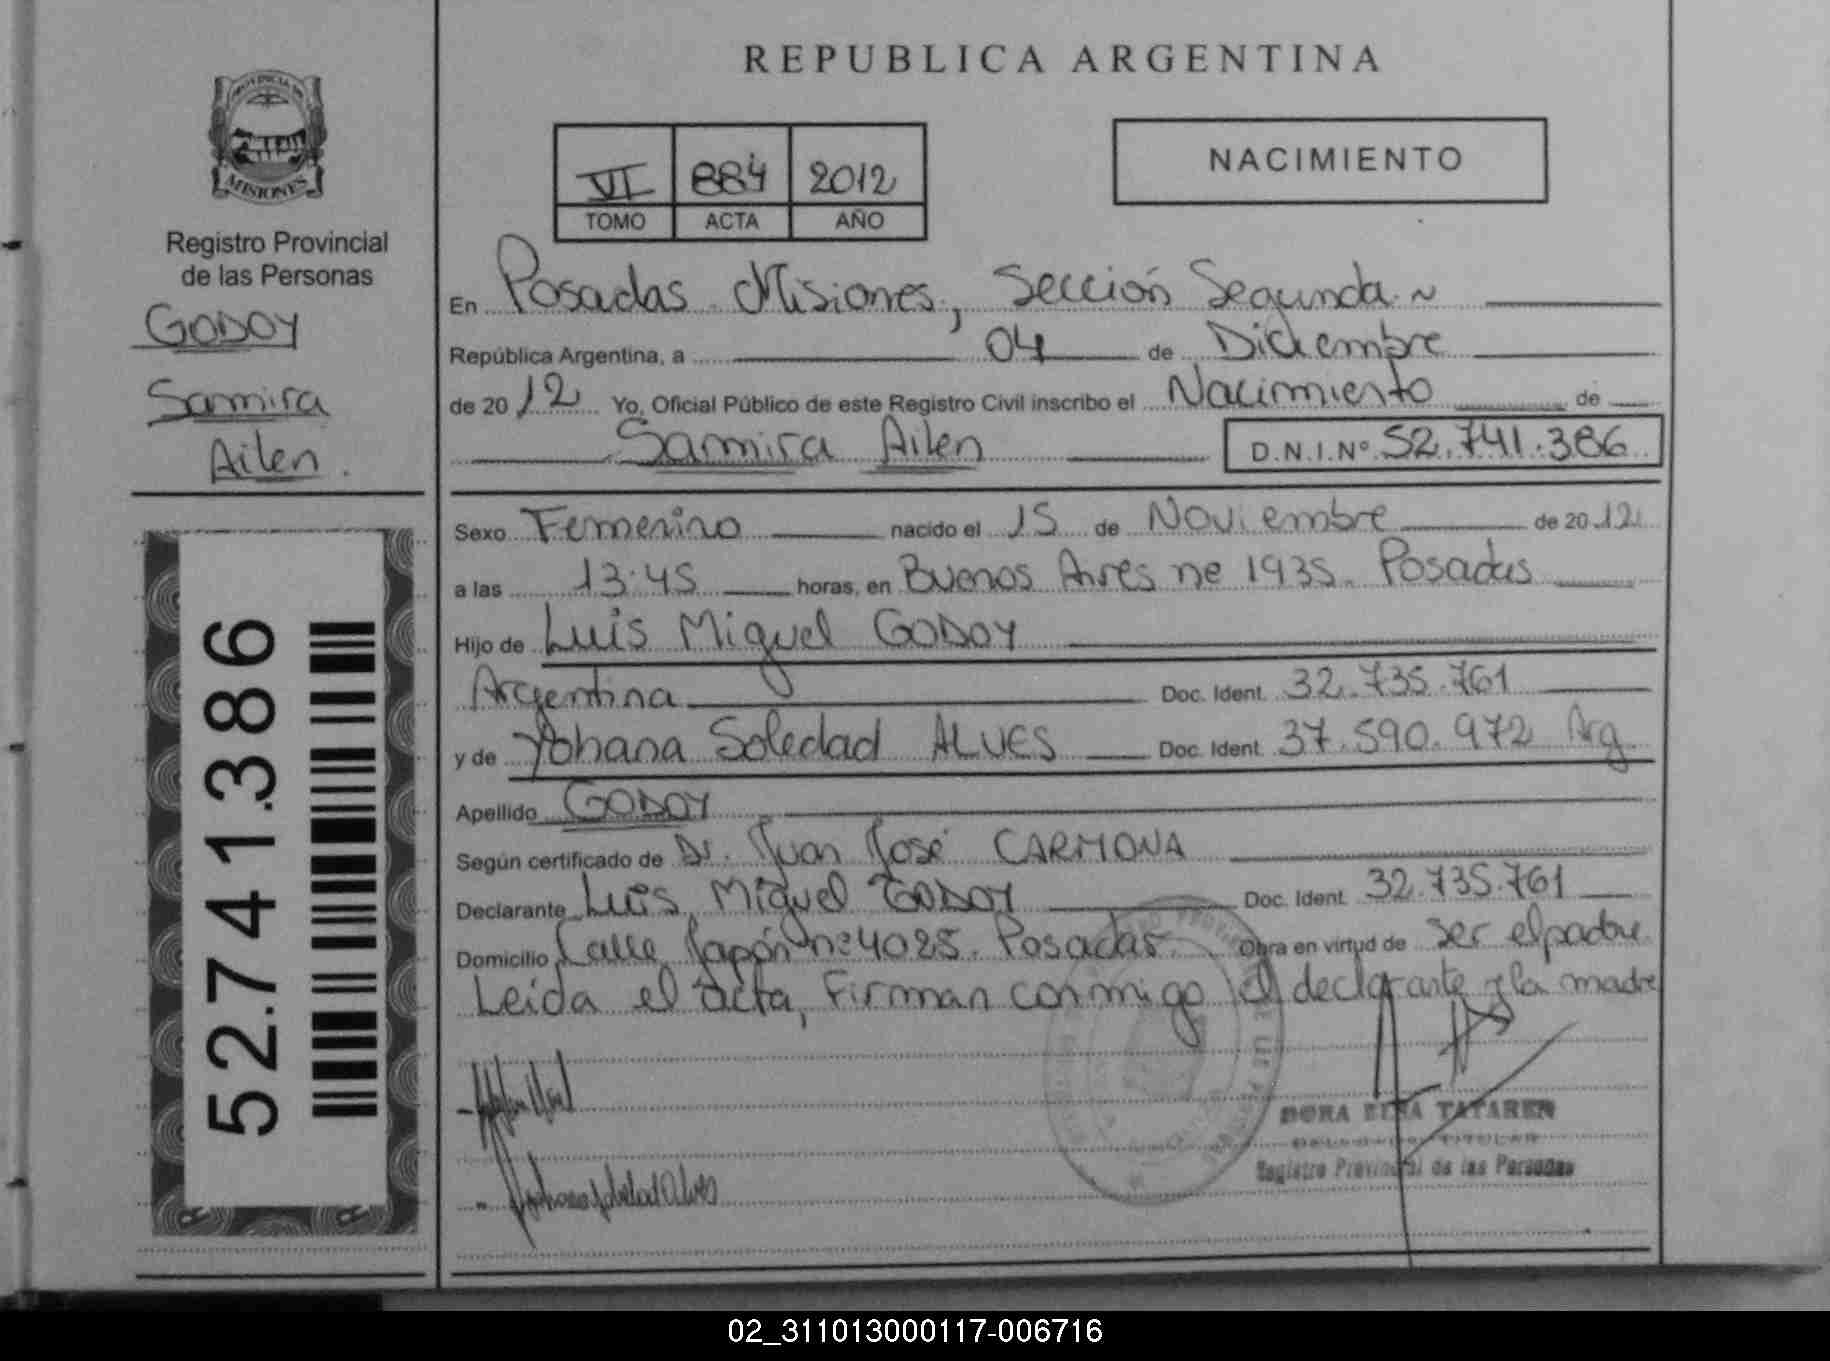 REPUBLICA ARGENTINA
PROVINCIA DE
MISIONES
Registro Provincial
de las Personas
GODOY
Samira
Ailen.
52.741.386
VI 884 2012
TOMO ACTA AÑO
NACIMIENTO
En Posadas Misiones, Sección Segunda.~
República Argentina, a 04 de Diciembre
de 2012 Yo, Oficial Público de este Registro Civil inscribo el Nacimiento de
Samira Ailen D.N.I.Nº 52.741.386
Sexo Femenino nacido el 15 de Noviembre de 2012
a las 13:45 horas, en Buenos Aires nº 1935. Posadas
Hijo de Luis Miguel GODOY
Argentina Doc. Ident. 32.735.761
y de Yohana Soledad ALVES Doc. Ident. 37.590.972 Arg
Apellido GODOY
Según certificado de Dr. Juan José CARMONA
Declarante Luis Miguel GODOY Doc. Ident. 32.735.761
Domicilio Calle Japón nº 4025. Posadas Obra en virtud de ser el padre
Leída el acta, Firman conmigo el declarante y la madre
TATAREN
TITULAR
Registro Provincial de las Personas
02_311013000117-006716